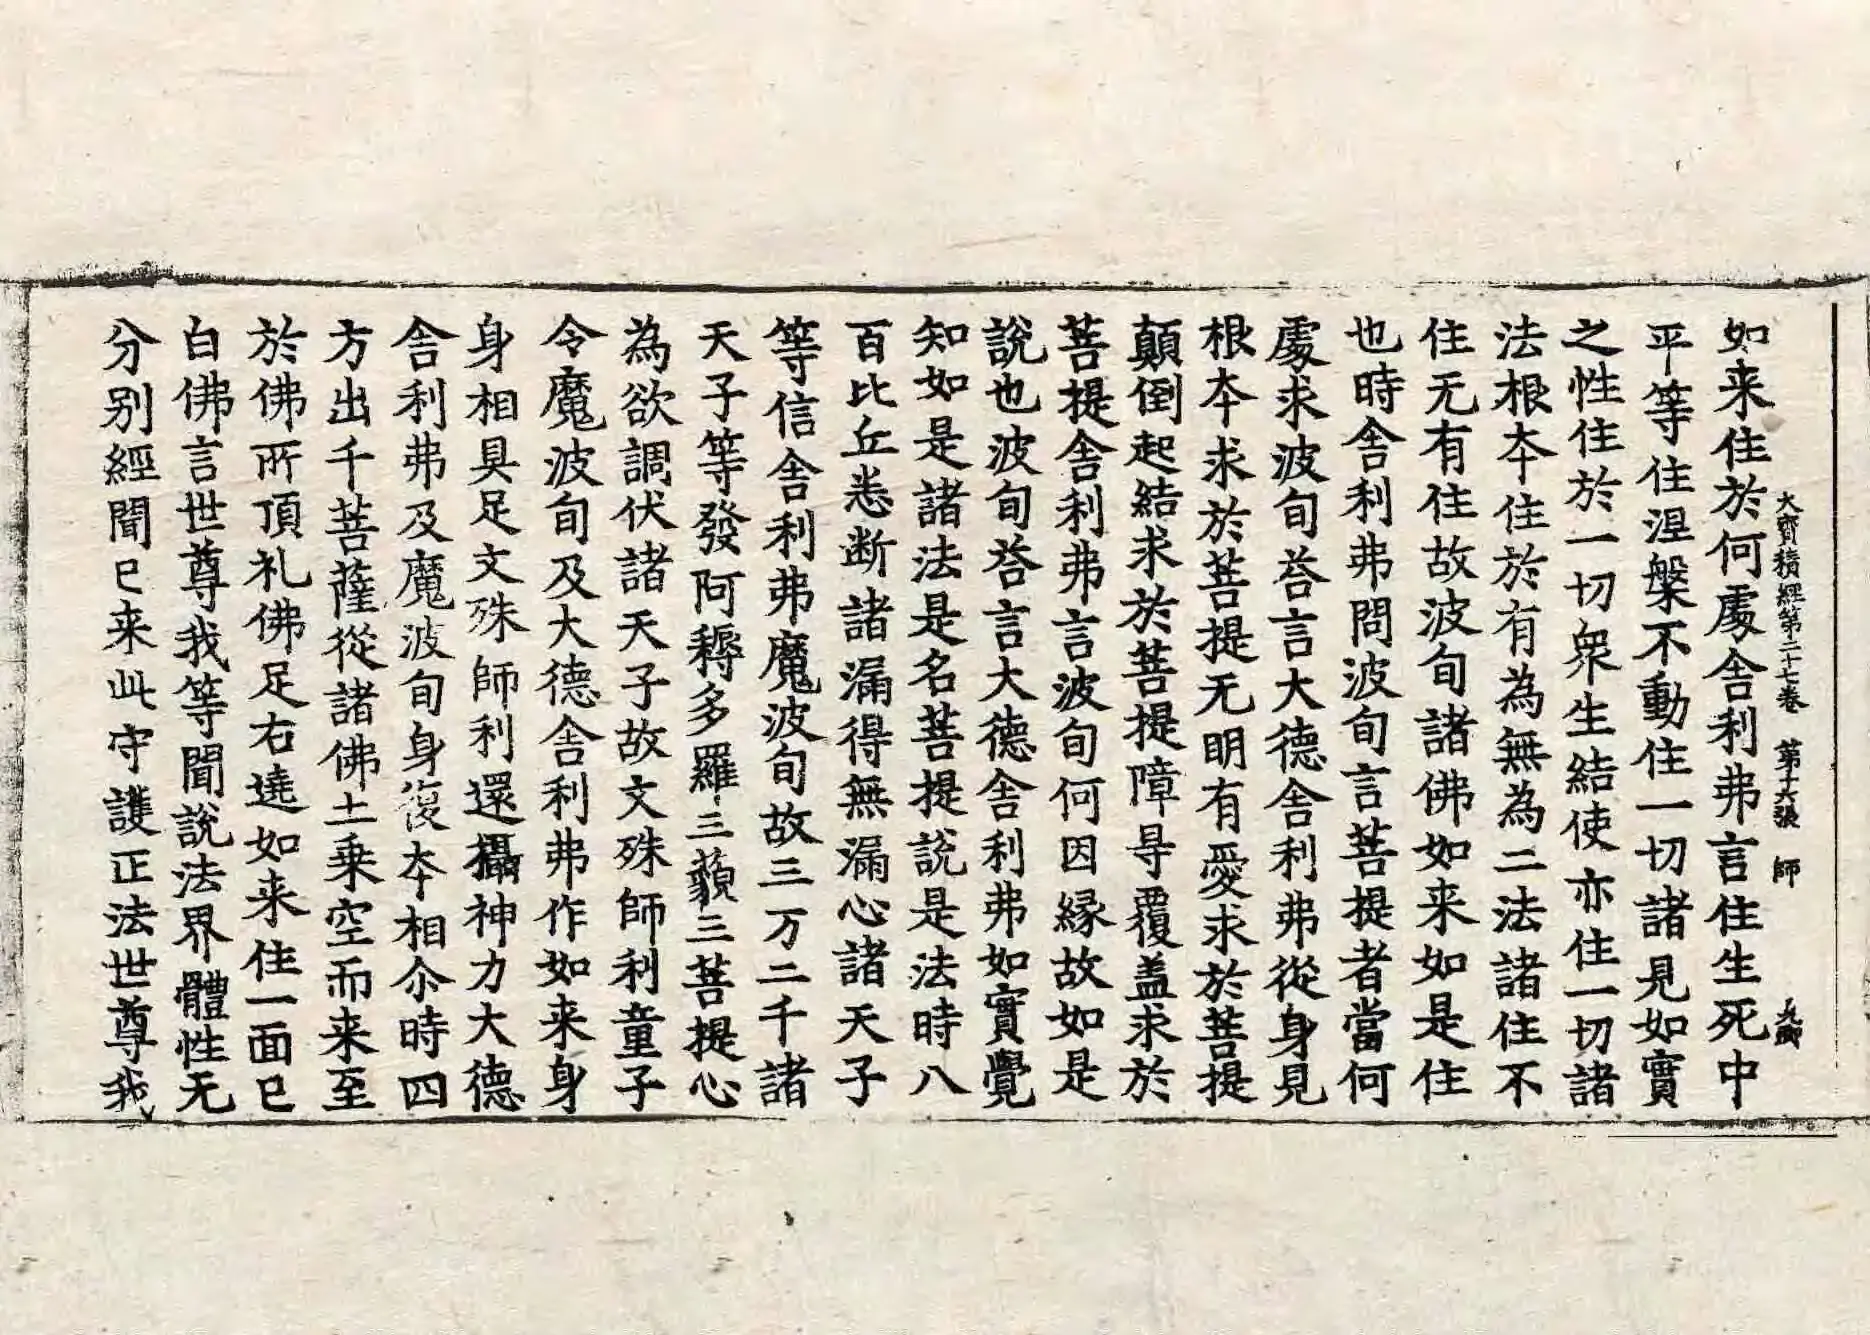 大寶積經第二十七卷　第十六張　師
如来住於何處舎利弗言住生死中
平等住涅槃不動住一切諸見如實
之性住於一切衆生結使亦住一切諸
法根本住於有為無為二法諸住不
住无有住故波旬諸佛如来如是住
也時舎利弗問波旬言菩提者當何
處求波旬荅言大德舎利弗從身見
根本求於菩提无明有愛求於菩提
顛倒起結求於菩提障㝵覆盖求於
菩提舎利弗言波旬何因縁故如是
說也波旬荅言大德舎利弗如實覺
知如是諸法是名菩提說是法時八
百比丘悉断諸漏得無漏心諸天子
等信舎利弗魔波旬故三万二千諸
天子等發阿耨多羅三藐三菩提心
為欲調伏諸天子故文殊師利童子
令魔波旬及大德舎利弗作如来身
身相具足文殊師利還攝神力大德
舎利弗及魔波旬身復本相尒時四
方出千菩薩從諸佛土乗空而来至
於佛所頂礼佛足右遶如来住一面已
白佛言世尊我等聞說法界體性无
分别經聞已来此守護正法世尊我